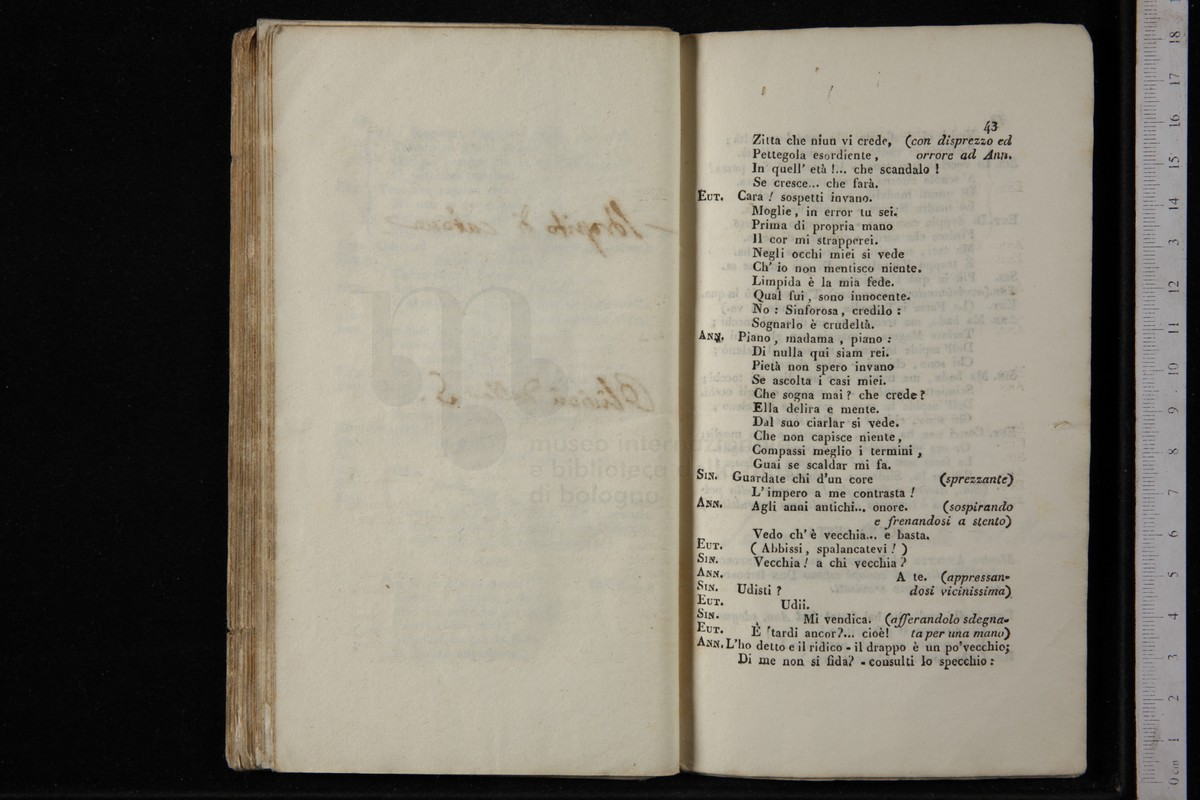 museo internazion
e biblioteca
di bologna
43
Zitta che niun vi crede, (con disprezzo ed
Pettegola esordiente, orrore ad Ann.
In quell' età !... che scandalo !
Se cresce... che farà.
EUT. Cara ! sospetti invano.
Moglie, in error tu sei.
Prima di propria mano
Il cor mi strapperei.
Negli occhi miei si vede
Ch' io non mentisco niente.
Limpida è la mia fede.
Qual fui, sono innocente.
No : Sinforosa, credilo :
Sognarlo è crudeltà.
ANN. Piano, madama, piano :
Di nulla qui siam rei.
Pietà non spero invano
Se ascolta i casi miei.
Che sogna mai ? che crede ?
Ella delira e mente.
Dal suo ciarlar si vede.
Che non capisce niente,
Compassi meglio i termini,
Guai se scaldar mi fa.
SIN. Guardate chi d'un core (sprezzante)
L' impero a me contrasta !
ANN. Agli anni antichi... onore. (sospirando
e frenandosi a stento)
Vedo ch' è vecchia... e basta.
EUT. ( Abbissi, spalancatevi ! )
SIN. Vecchia ! a chi vecchia ?
ANN. A te. (appressan-
SIN. Udisti ? dosi vicinissima)
EUT. Udii.
SIN. Mi vendica. (afferandolo sdegna-
EUT. E 'tardi ancor ?... cioè! ta per una mano)
ANN. L'ho detto e il ridico - il drappo è un po' vecchio;
Di me non si fida? - consulti lo specchio :